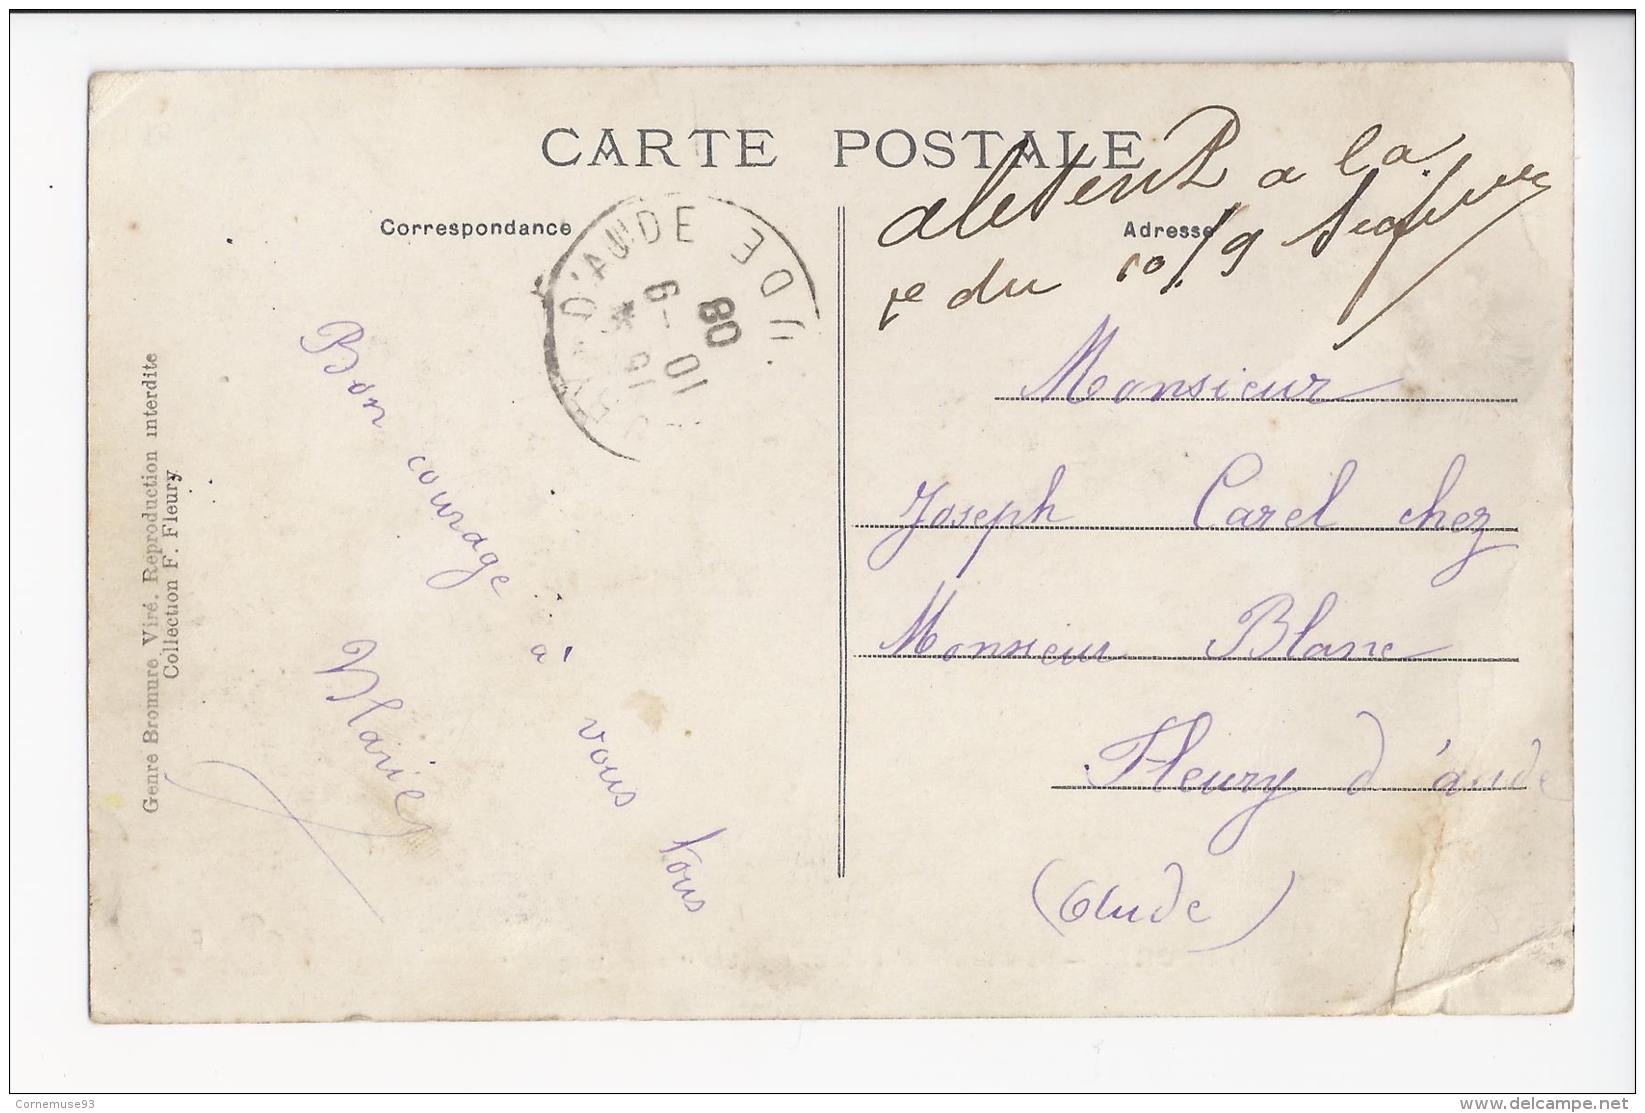 CARTE POSTALE
Correspondance
Adresse
a la
du 10/9
D'AUDE
AUDE
10-9
08
Bon courage à vous tous
Marie
Monsieur
Joseph Carel chez
Monsieur Blanc
Fleury d'aude
(Aude)
Genre Bromure Viré. Reproduction interdite
Collection F. Fleury
Cornemuse93
www.delcampe.net